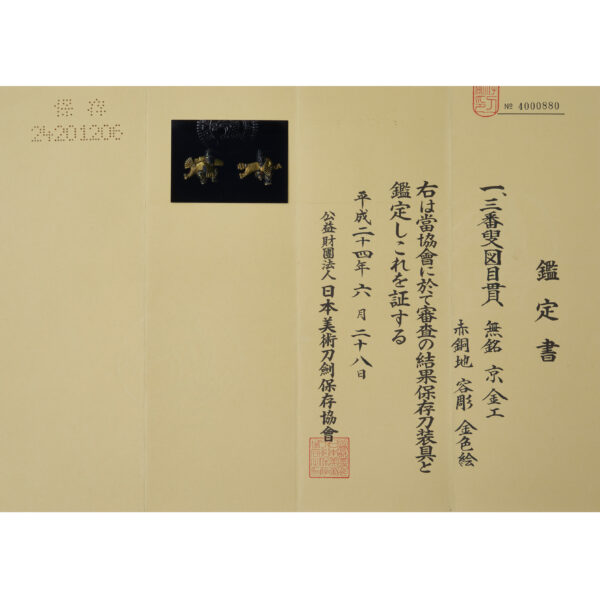 № 4000880
鑑定書
一、三番叟図目貫 無銘 京金工
赤銅地 容彫 金色絵
右は當協會に於て審査の結果保存刀装具と
鑑定しこれを証する
平成二十四年六月二十八日
公益財團法人 日本美術刀劍保存協會
保存
24201206